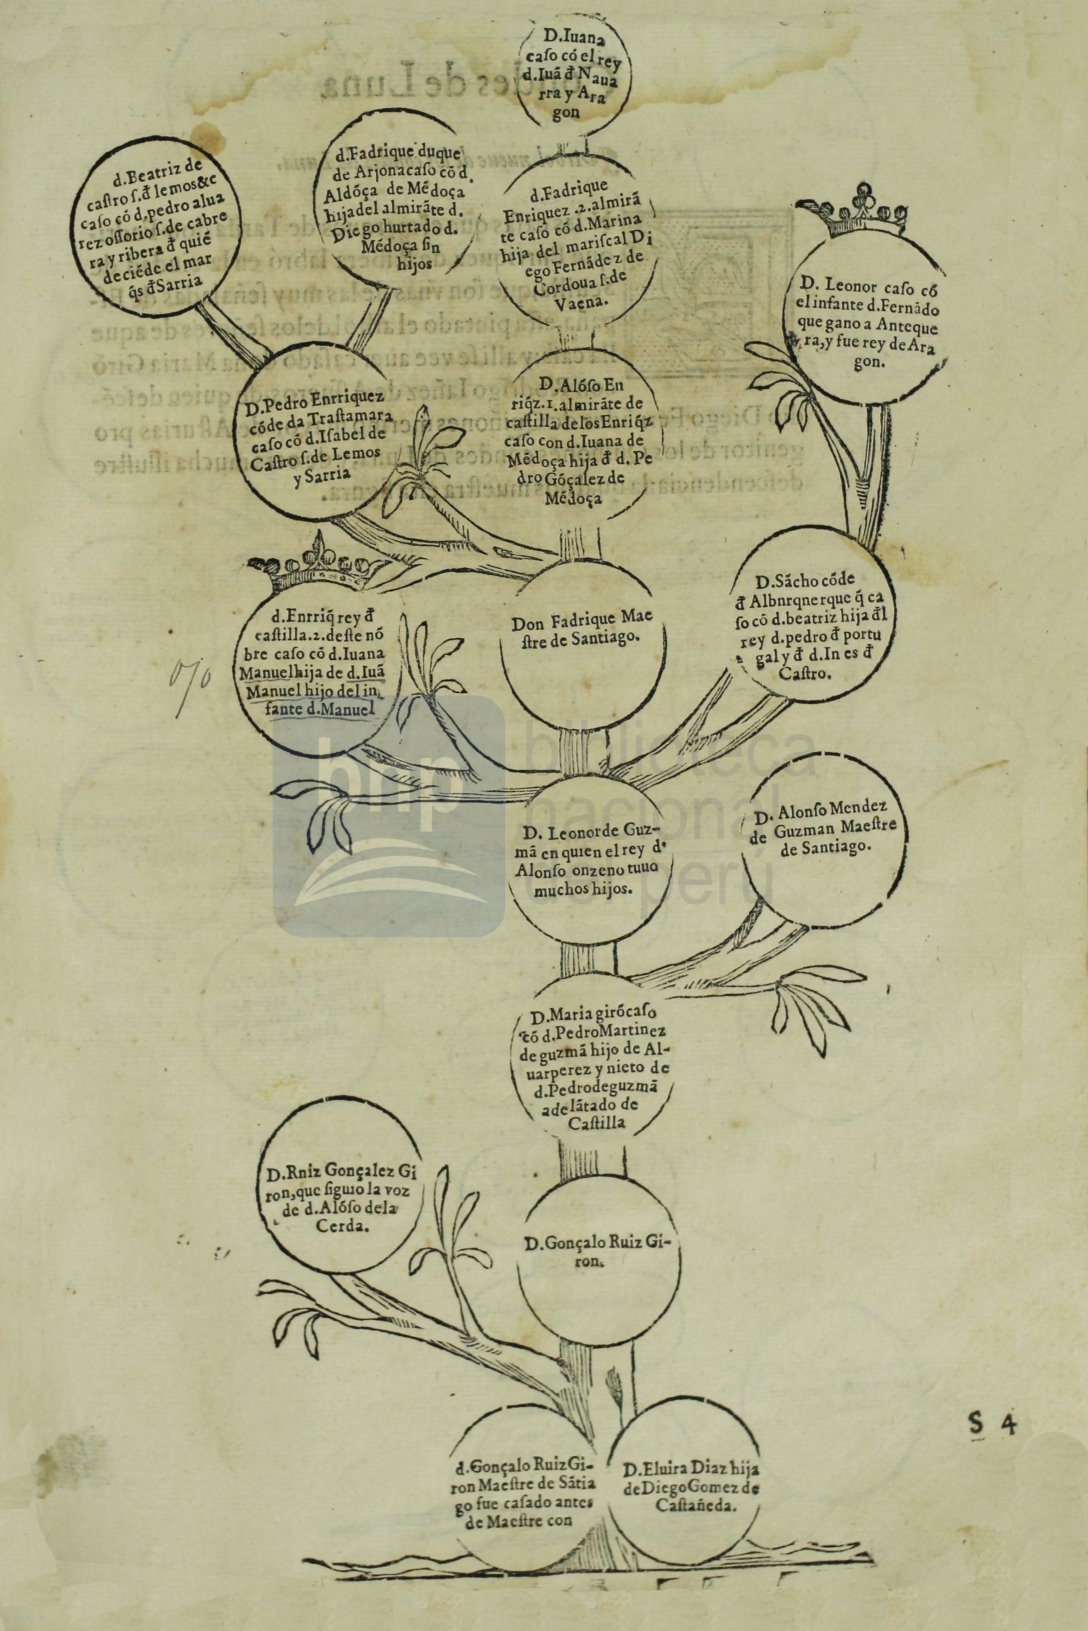 D.Iuana
caſo có el rey
d.Iuã đ Naua
rra y Ara
gon
d.Beatriz de
caſtro ſ.đ lemos&c
caſo có d.pedro alua
rez oſſorio ſ.de cabre
ra y ribera đ quié
deciéde el mar
q̃s đ Sarria
d.Fadrique duque
de Arjona caſo cõ d.
Aldóça de Médoça
hija del almirãte d.
Diego hurtado d.
Médoça ſin
hijos
d.Fadrique
Enriquez .2. almirã
te caſo cõ d.Marina
hija del mariſcal Di
ego Fernãdez de
Cordoua ſ.de
Vaena.
D. Leonor caſo cõ
el infante d.Fernãdo
que gano a Anteque
ra,y fue rey de Ara
gon.
D.Pedro Enrriquez
códe da Traſtamara
caſo cõ d.Iſabel de
Caſtro ſ.de Lemos
y Sarria
D.Alóſo En
riq́z.1.almirãte de
caſtilla de los Enriq́z
caſo con d.Iuana de
Médoça hija đ d. Pe
dro Góçalez de
Médoça
d.Enrriq̃ rey đ
caſtilla.2.deſte nó
bre caſo cõ d.Iuana
Manuel hija de d.Iuã
Manuel hijo del in
fante d.Manuel
Don Fadrique Mae
ſtre de Santiago.
D.Sãcho códe
đ Albnrqnerque q̃ ca
ſo cõ d.beatriz hija đl
rey d.pedro đ portu
gal y đ d.In es đ
Caſtro.
D. Leonor de Guz-
mã en quien el rey d.
Alonſo onzeno tuuo
muchos hijos.
D. Alonſo Mendez
de Guzman Maeſtre
de Santiago.
D.Maria giró caſo
có d.Pedro Martinez
de guzmã hijo de Al-
uarperez y nieto de
d.Pedro de guzmã
adelãtado de
Caſtilla
D.Rniz Gonçalez Gi
ron,que ſiguio la voz
de d.Alóſo dela
Cerda.
D.Gonçalo Ruiz Gi-
ron.
d.Gonçalo Ruiz Gi-
ron Maeſtre de Sãtia
go fue caſado antes
de Maeſtre con
D.Eluira Diaz hija
de Diego Gomez de
Caſtañeda.
S 4
bnp
biblioteca
nacional
del perú